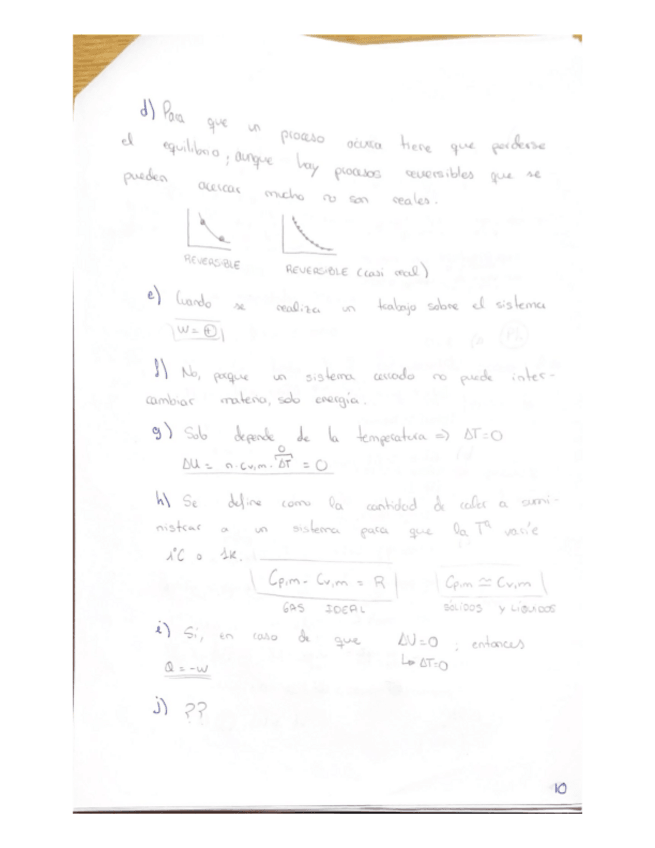 d) Para que un proceso ocurra tiene que perderse
el equilibrio, aunque hay procesos reversibles que se
pueden acercar mucho no son reales.
REVERSIBLE
REVERSIBLE (casi real)
e) Cuando se realiza un trabajo sobre el sistema
W = ⊕
f) No, porque un sistema cerrado no puede inter-
cambiar materia, solo energía.
g) Solo depende de la temperatura => ΔT=0
0
ΔU = n·Cv,m·ΔT = 0
h) Se define como la cantidad de calor a sumi-
nistrar a un sistema para que la Tª varíe
1°C o 1K.
Cp,m - Cv,m = R
Cp,m ≃ Cv,m
GAS IDEAL
SÓLIDOS Y LÍQUIDOS
i) Sí, en caso de que ΔU=0 ; entonces
↳ ΔT=0
Q = -W
j) ??
10